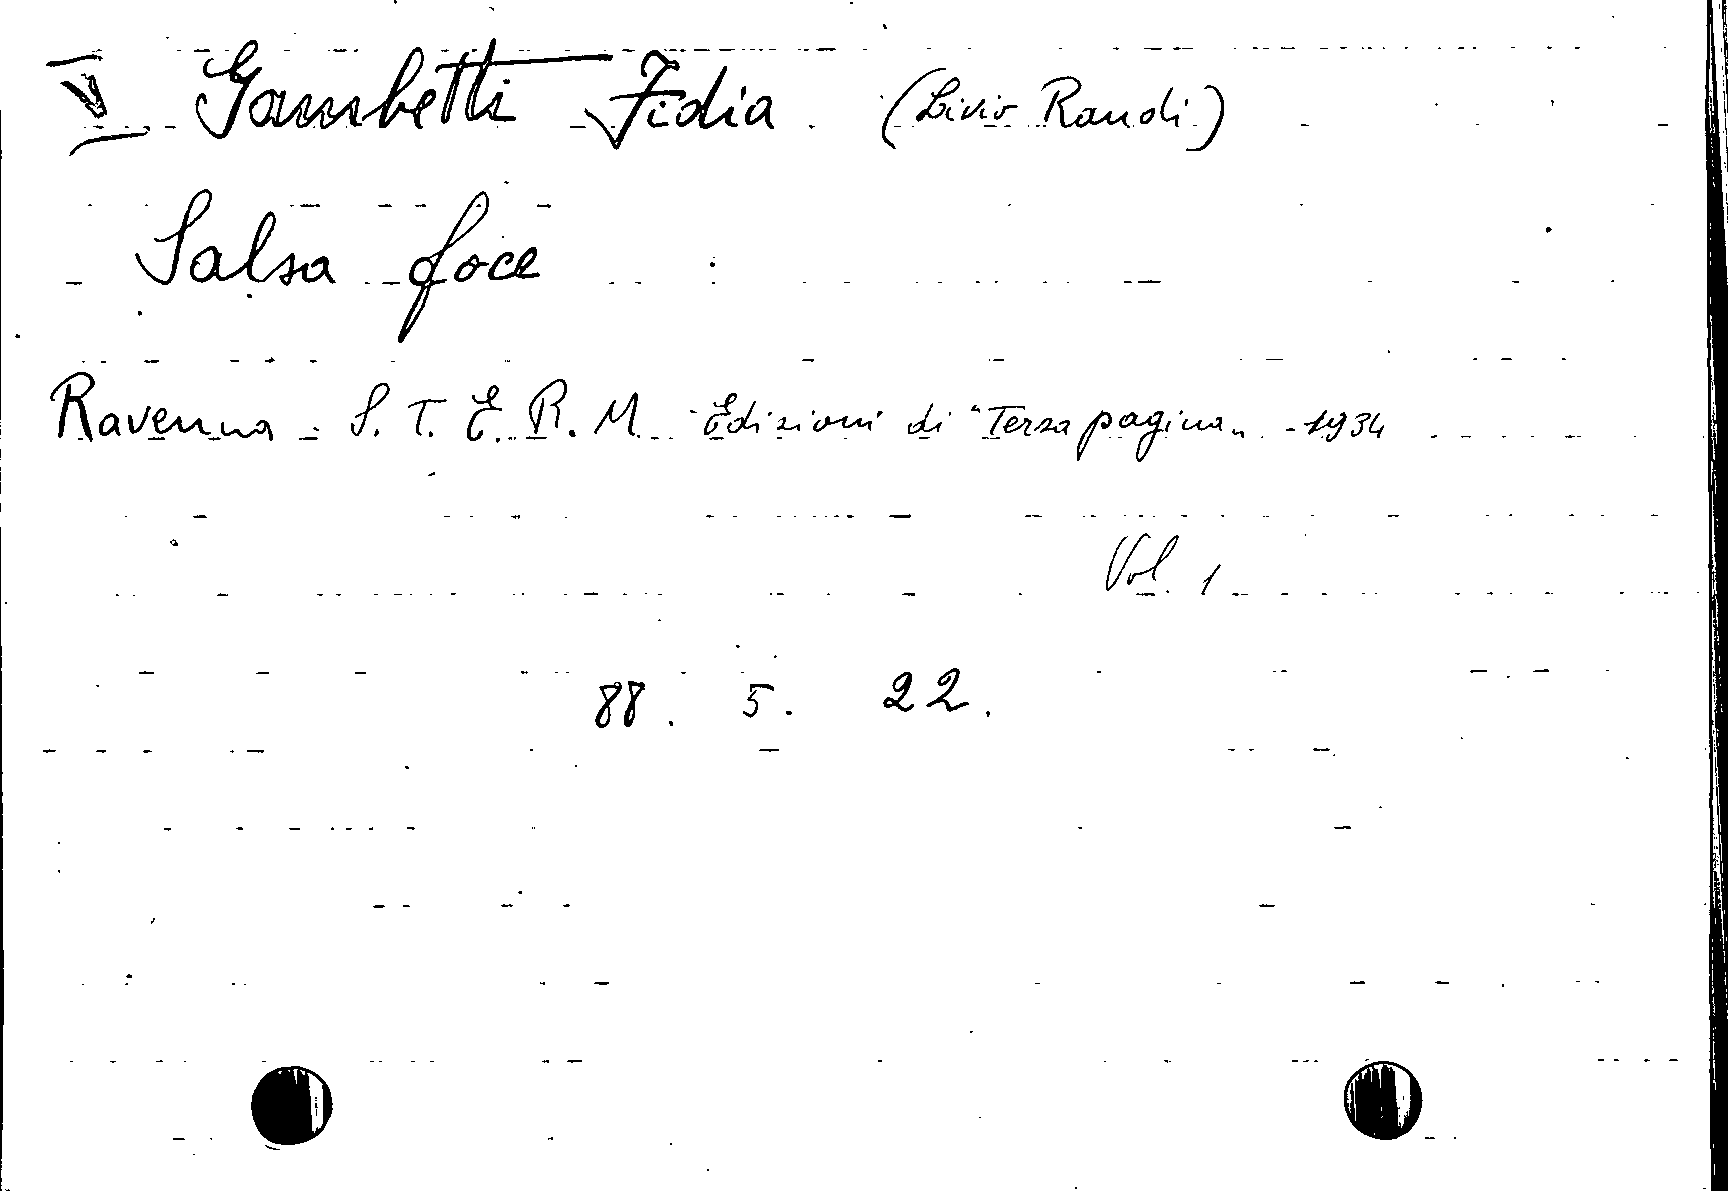 V Gambetti Fidia (Livio Randi)
Salsa foce
Ravenna - S. T. E. R. M. Edizioni di "Terza pagina" - 1934
Vol. 1
88. 5. 22.